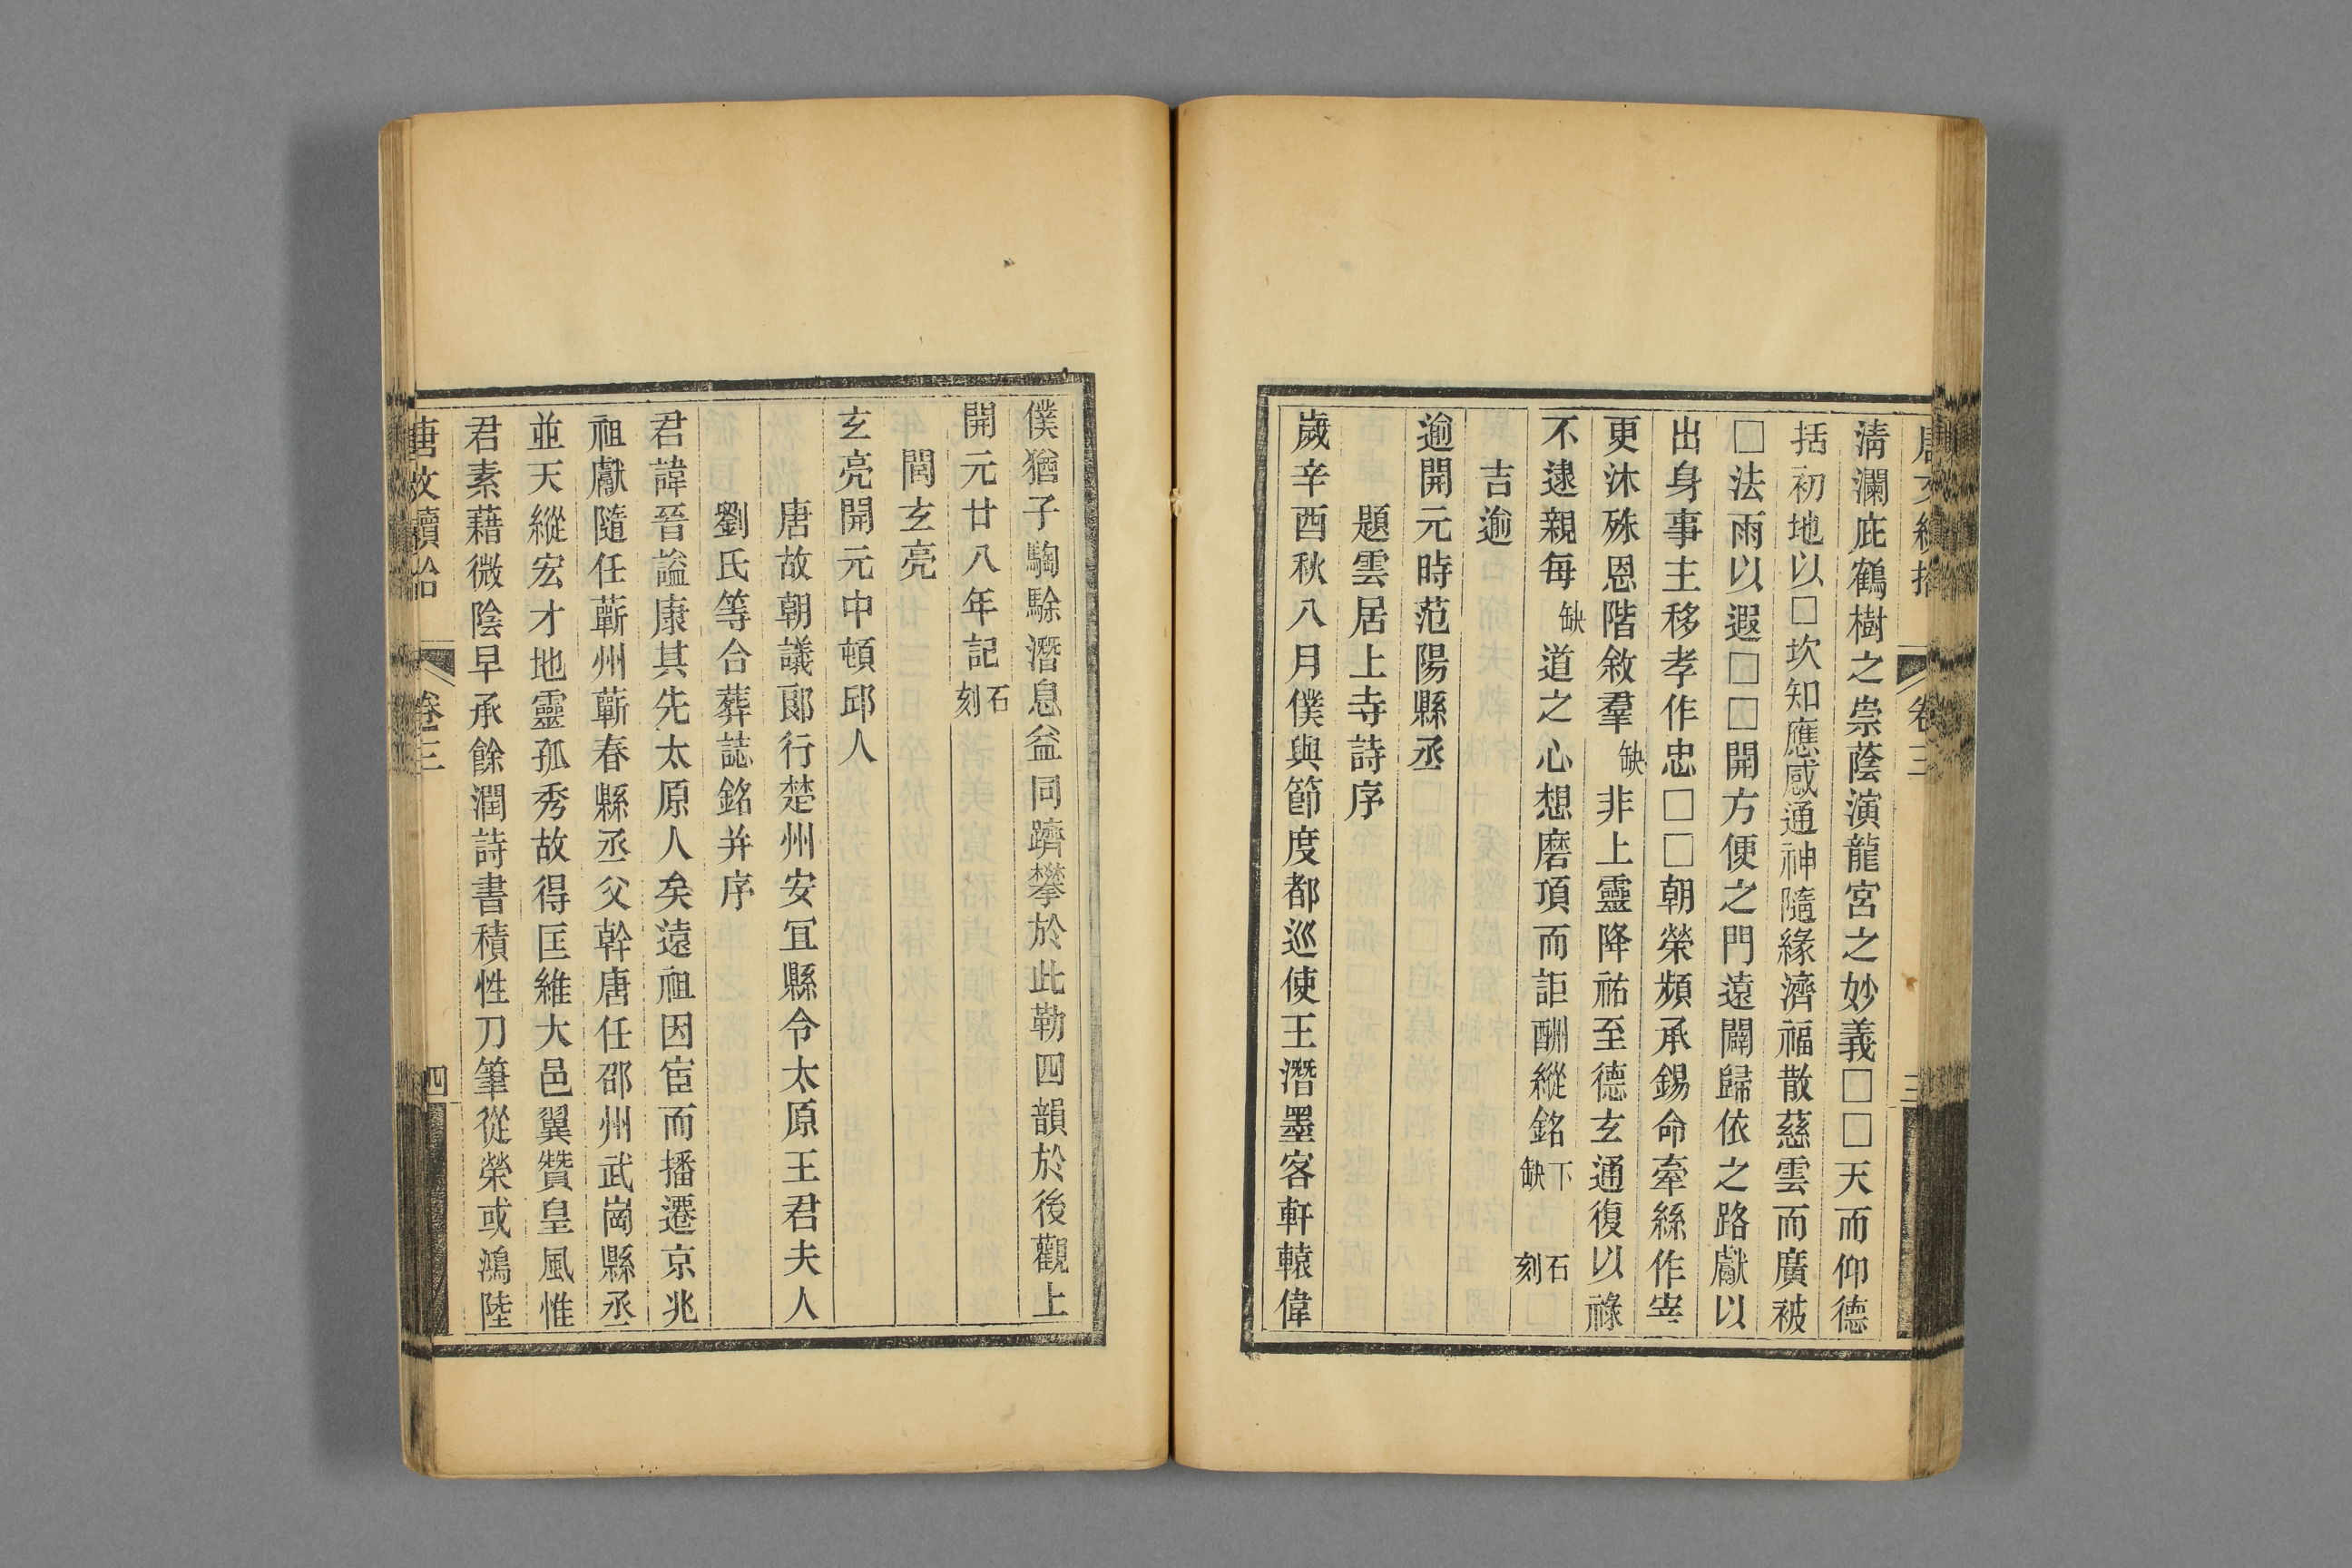 唐文續拾 卷三 三
淸瀾庇鶴樹之崇蔭演龍宮之妙義□□天而仰德
括初地以□坎知應感通神隨緣濟福散慈雲而廣被
□法雨以遐□□開方便之門遠闢歸依之路獻以
出身事主移孝作忠□□朝榮頻承錫命牽絲作宰
更沐殊恩階敘羣缺非上靈降祐至德玄通復以祿
不逮親每缺道之心想磨頂而詎酬縱銘下缺 石刻
吉逾
逾開元時范陽縣丞
題雲居上寺詩序
歲辛酉秋八月僕與節度都巡使王潛墨客軒轅偉
僕猶子騊駼潛息益同躋攀於此勒四韻於後觀上
開元廿八年記石刻
閻玄亮
玄亮開元中頓邱人
唐故朝議郞行楚州安冝縣令太原王君夫人
劉氏等合葬誌銘幷序
君諱晉諡康其先太原人矣遠祖因宦而播遷京兆
祖獻隨任蘄州蘄春縣丞父幹唐任邵州武崗縣丞
並天縱宏才地靈孤秀故得匡維大邑翼贊皇風惟
君素藉微陰早承餘潤詩書積性刀筆從榮或鴻陸
唐文續拾 卷三 四